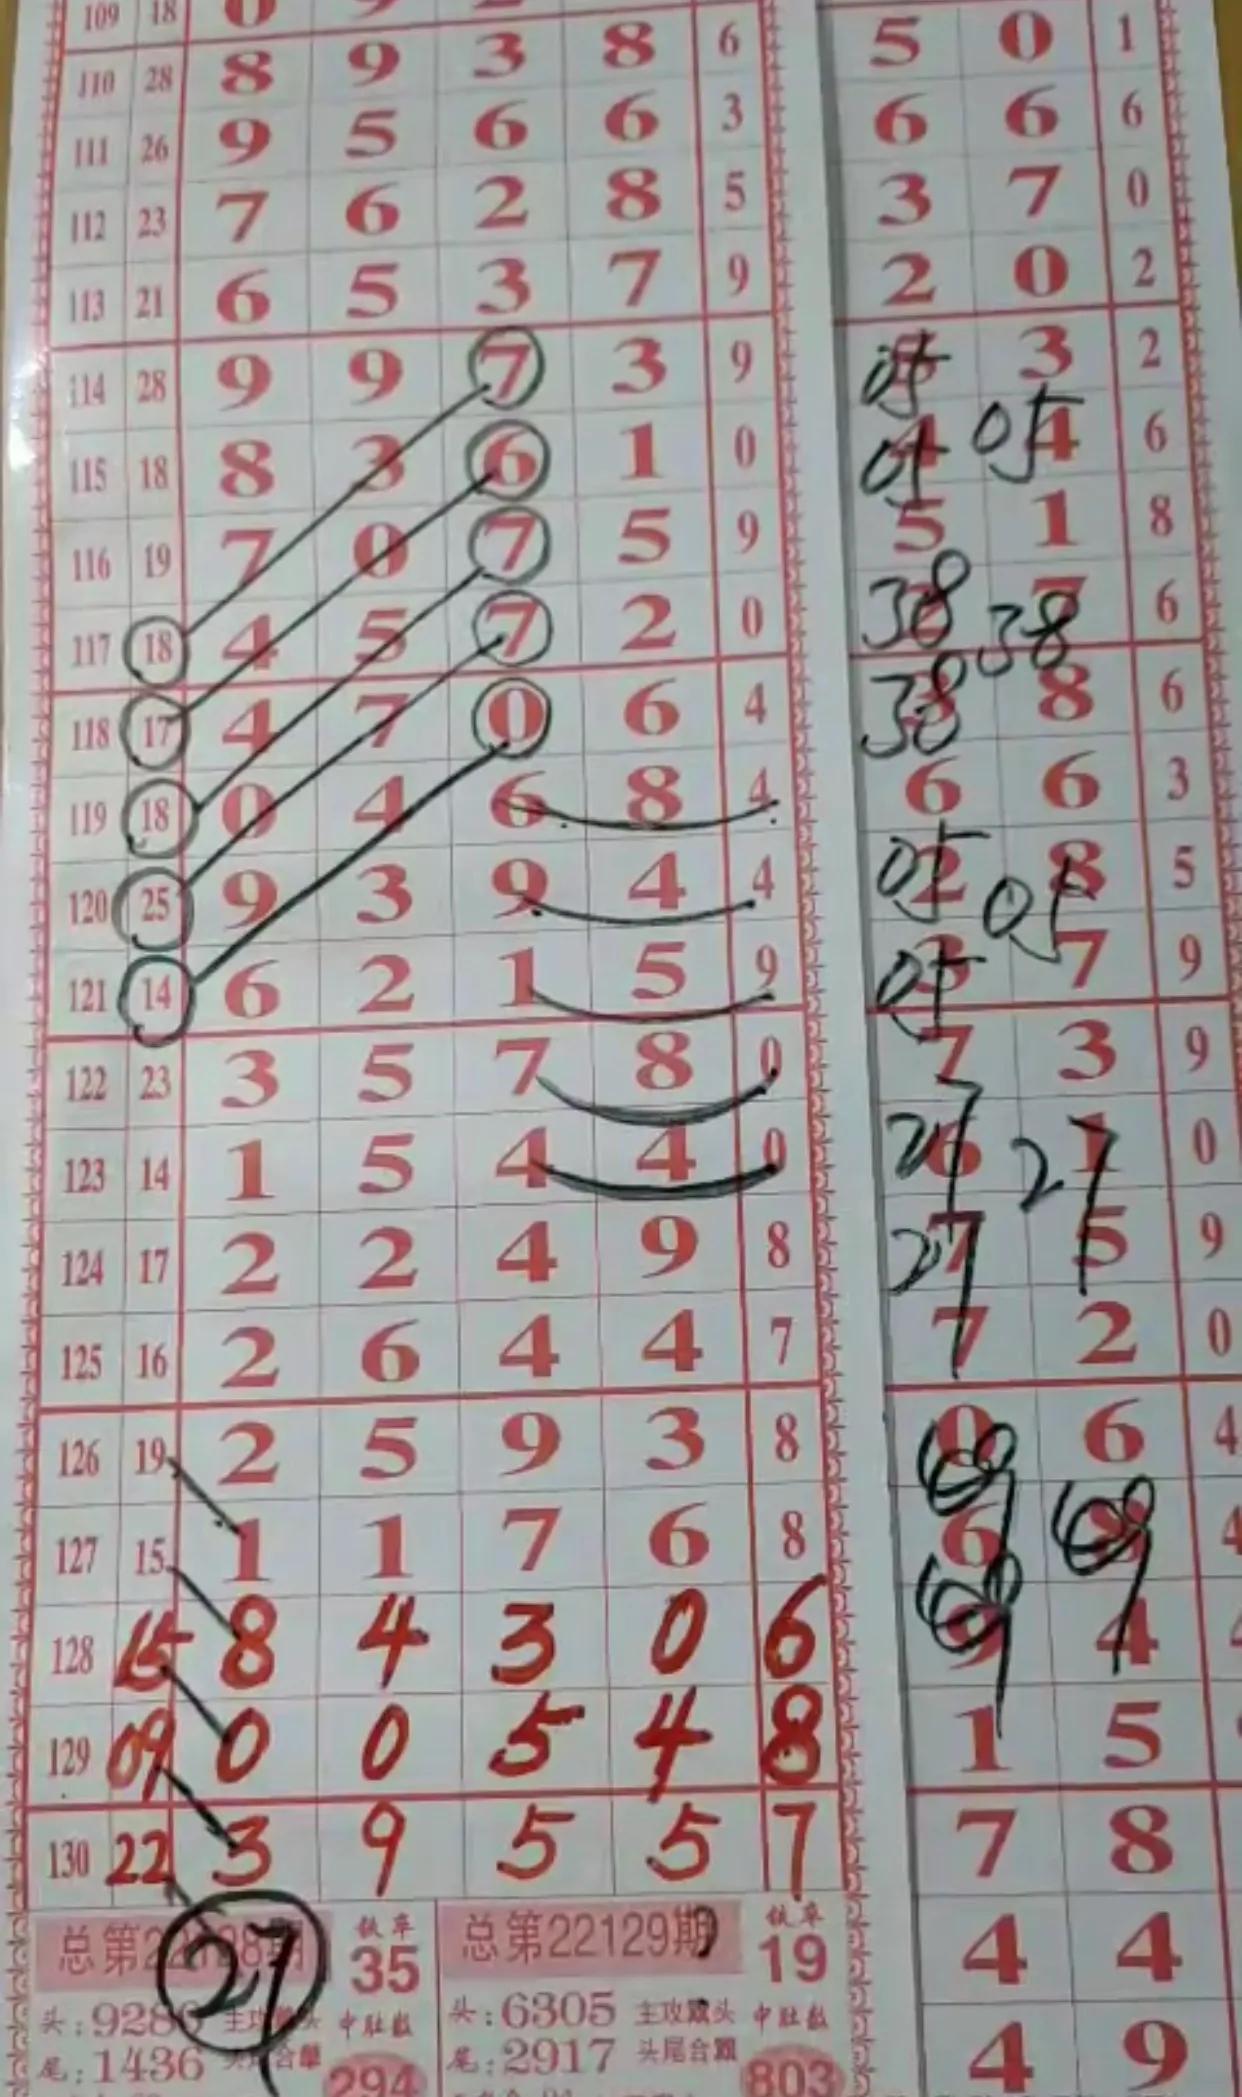 109 18 0 9 2
110 28 8 9 3 8 6 5 0 1
111 26 9 5 6 6 3 6 6 6
112 23 7 6 2 8 5 3 7 0
113 21 6 5 3 7 9 2 0 2
114 28 9 9 7 3 9 05 3 2
115 18 8 3 6 1 0 05 4 05 4 6
116 19 7 0 7 5 9 5 1 8
117 18 4 5 7 2 0 38 38 7 6
118 17 4 7 0 6 4 38 8 6
119 18 0 4 6 8 4 6 6 3
120 25 9 3 9 4 4 05 2 05 8 5
121 14 6 2 1 5 9 05 3 7 9
122 23 3 5 7 8 0 7 3 9
123 14 1 5 4 4 0 27 6 27 1 0
124 17 2 2 4 9 8 27 7 5 9
125 16 2 6 4 4 7 7 2 0
126 19 2 5 9 3 8 69 0 6 4
127 15 1 1 7 6 8 6 69 8 4
128 15 8 4 3 0 6 69 9 4
129 09 0 0 5 4 8 1 5
130 22 3 9 5 5 7 7 8
总第22128期 铁卒 35 总第22129期 铁卒 19 4 4
27
头:9286 主攻 头 中肚数 头:6305 主攻 头 中肚数
尾:1436 头尾合單 294 尾:2917 头尾合 803 4 9